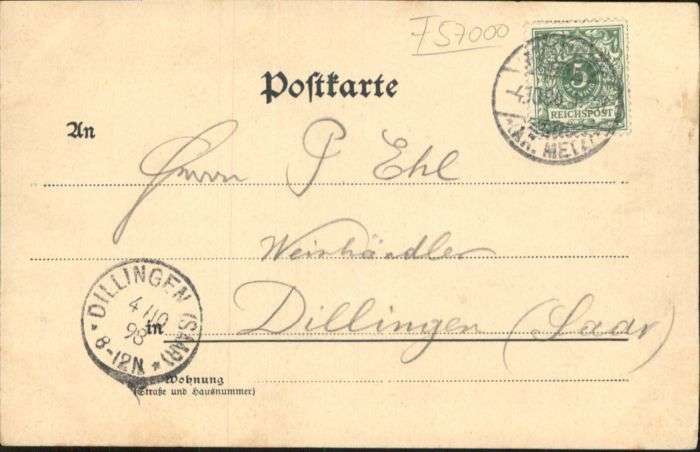 F 57000
5
REICHSPOST
(KR. METZ)
Postkarte
An
Herrn P Ehl
Weinhändler
in Dillingen (Saar)
* DILLINGEN (SAAR) *
4/10
98
8-12N
Wohnung
(Straße und Hausnummer)